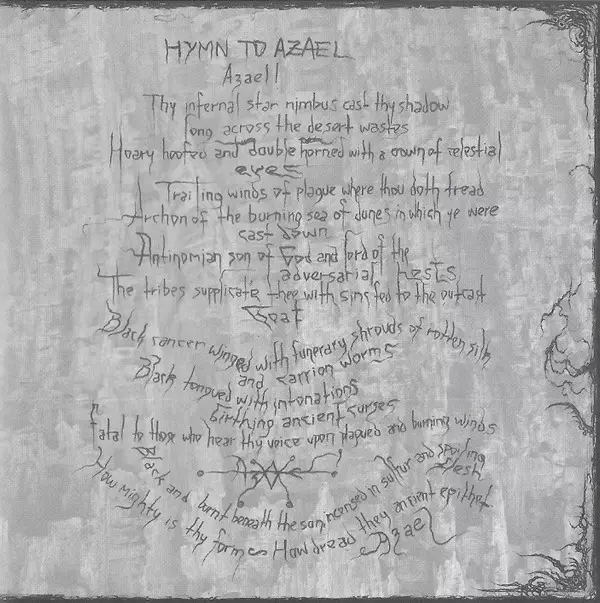 HYMN TO AZAEL
Azael!
Thy infernal star nimbus cast thy shadow
long across the desert wastes
Hoary hoofed and double horned with a crown of celestial
eyes
Trailing winds of plague where thou doth tread
Archon of the burning sea of dunes in which ye were
cast down
Antinomian son of God and lord of the
adversarial hosts
The tribes supplicate thee with sins fed to the outcast
Goat
Black cancer winged with funerary shrouds of rotten silk
and carrion worms
Black tongued with intonations
birthing ancient curses
Fatal to those who hear thy voice upon plagued and burning winds
Black and burnt beneath the sun, incensed in sulfur and spoiling
flesh
How mighty is thy form How dread they ancient epithet
Azael